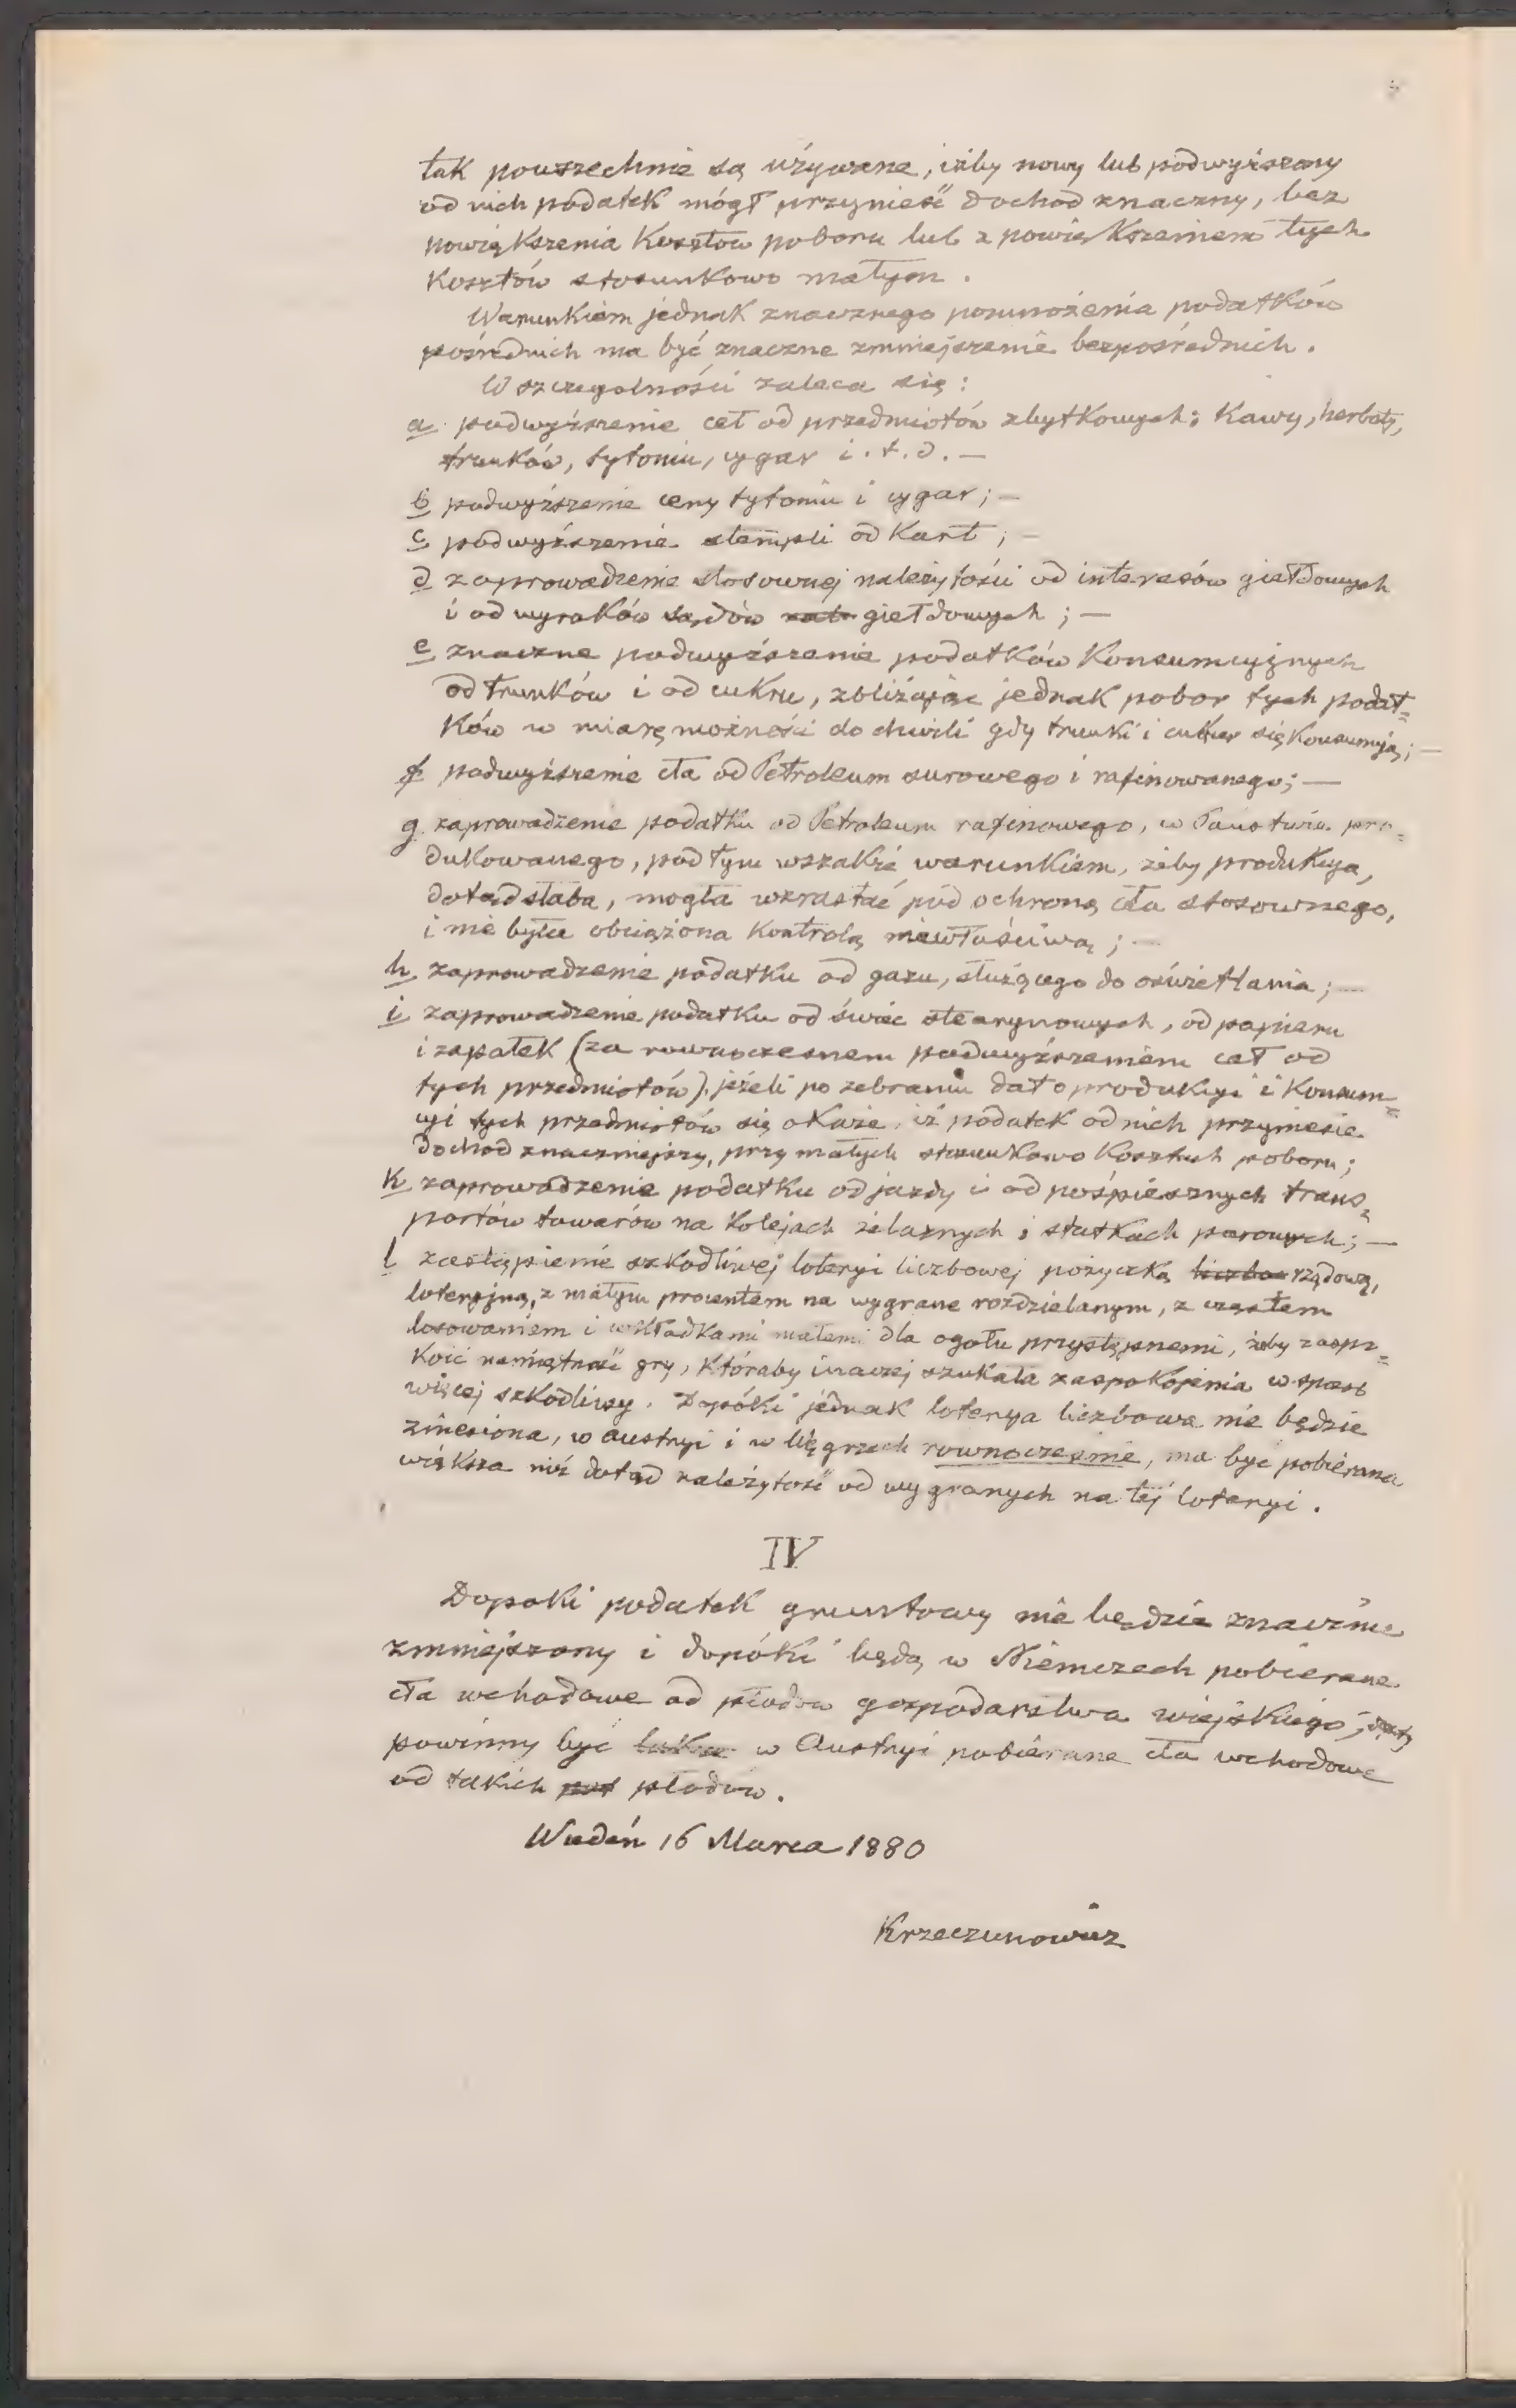 tak powszechnie są używane, iżby nowy lub podwyższony
od nich podatek mógł przynieść dochod znaczny, bez
powiększenia Kosztow poboru lub z powiększeniem tych
Kosztów stosunkowo małym.
Warunkiem jednak znacznego pomnożenia podatków
pośrednich ma być znaczne zmniejszenie bezpośrednich.
W szczegolności zaleca się:
a podwyższenie ceł od przedmiotów zbytkowych: Kawy, herbaty,
trunków, tytoniu, cygar i.t.d. —
b podwyższenie ceny tytoniu i cygar; —
c podwyższenie stempli od Kart; —
d zaprowadzenie stosownej należytości od interesów giełdowych
i od wyroków sądów giełdowych; —
e znaczne podwyższenie podatków Konsumcyjnych
od trunków i od cukru, zbliżając jednak pobor tych podat=
ków w miarę możności do chwili gdy trunki i cukier się Konsumują; —
f podwyższenie cła od Petroleum surowego i rafinowanego; —
g. zaprowadzenie podatku od Petroleum rafinowego, w Państwie pro=
dukowanego, pod tym wszakże warunkiem, żeby produkcya,
dotąd słaba, mogła wzrastać pod ochroną cła stosownego,
i nie była obciążona Kontrolą niewłaściwą; —
h. zaprowadzenie podatku od gazu, służącego do oświetlania; —
i zaprowadzenie podatku od świec stearynowych, od papieru
i zapałek (za rownoczesnem podwyższeniem ceł od
tych przedmiotów), jeżeli po zebraniu dat o produkcyi i Konsum=
cyi tych przedmiotów się okaże, iż podatek od nich przyniesie
dochod znaczniejszy, przy małych stosunkowo Kosztach poboru;
k zaprowadzenie podatku od jazdy i od pośpiesznych trans=
portów towarów na Kolejach żelaznych i statkach parowych; —
l zastąpienie szkodliwej loteryi liczbowej pożyczką rządową,
loteryjną, z małym procentem na wygrane rozdzielanym, z częstem
losowaniem i wkładkami małemi dla ogołu przystępnemi, żeby zaspo=
Koić namiętność gry, któraby inaczej szukała zaspokojenia w sposob
więcej szkodliwy. Dopóki jednak loterya liczbowa nie będzie
zniesiona, w Austryi i w Węgrzech rownocześnie, ma być pobierana
większa niż dotąd należytość od wygranych na tej loteryi.
IV
Dopoki podatek gruntowy nie będzie znacznie
zmniejszony i dopóki będą w Niemczech pobierane
cła wchodowe od płodow gospodarstwa wiejskiego,
powinny być w Austryi pobierane cła wchodowe
od takich płodow.
Wiedeń 16 Marca 1880
Krzeczunowicz